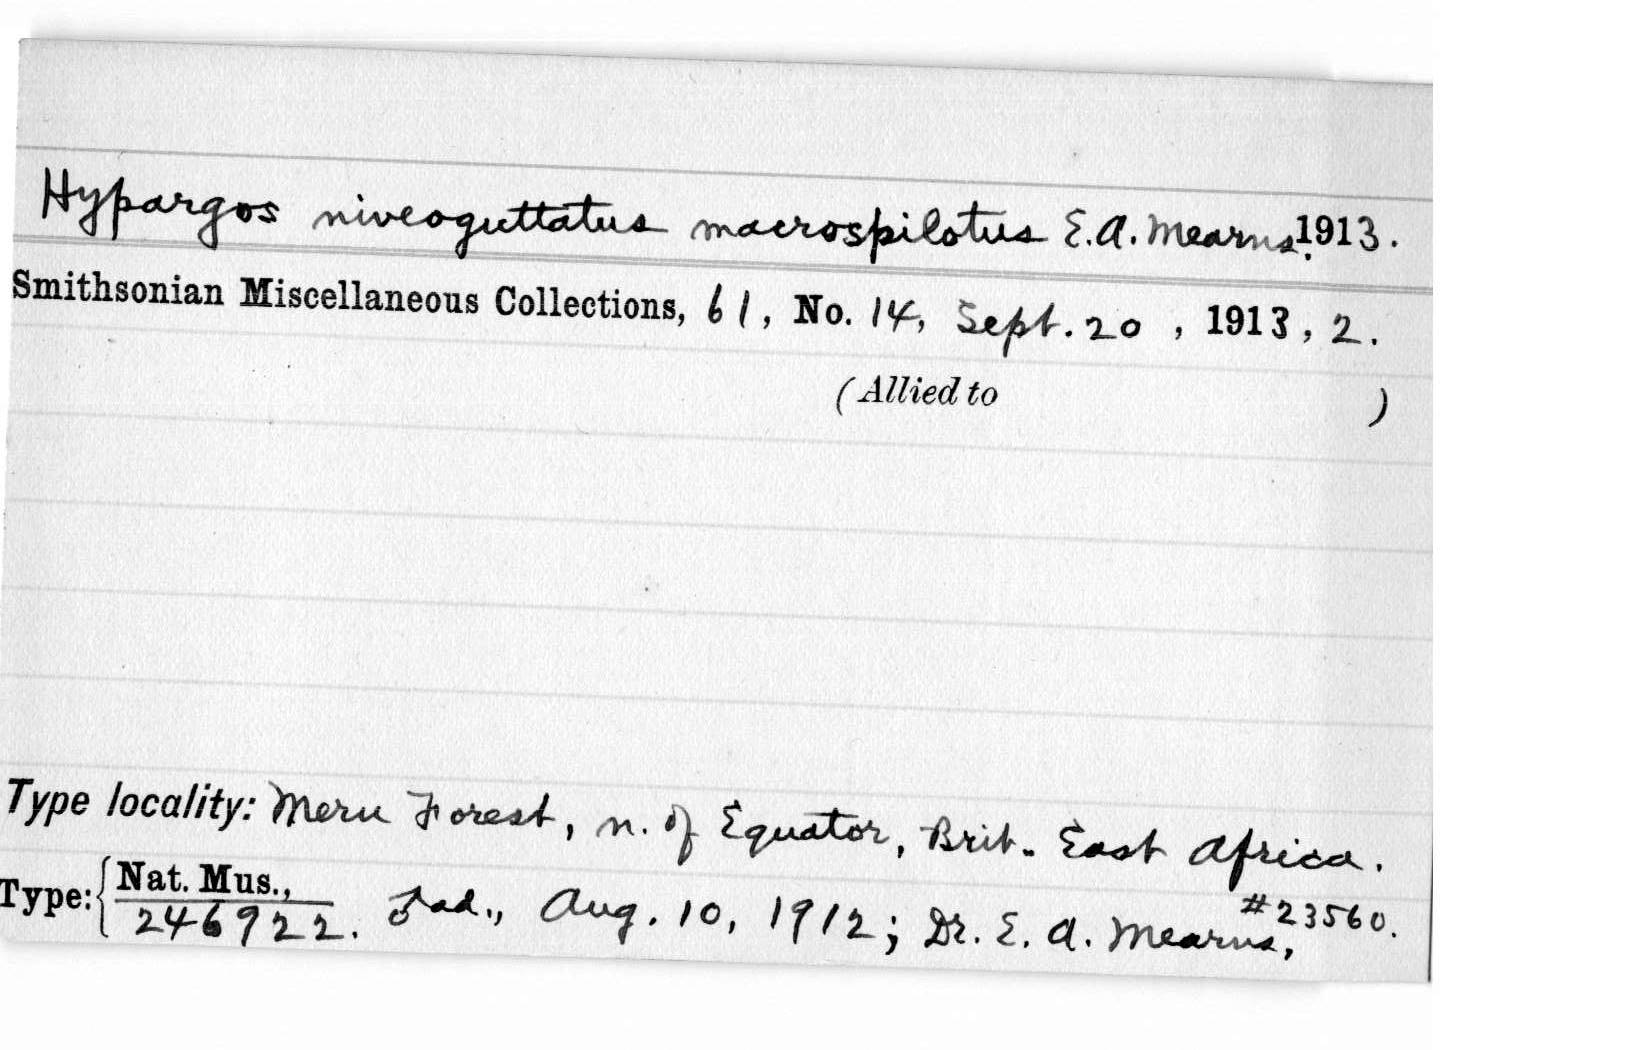 Hypargos niveoguttatus macrospilotus E.A. Mearns, 1913.
Smithsonian Miscellaneous Collections, 61, No. 14, Sept. 20, 1913, 2.
(Allied to )
Type locality: Meru Forest, n. of Equator, Brit. East Africa.
Type: { Nat. Mus., 246922. ♂ ad., Aug. 10, 1912; Dr. E. A. Mearns, #23560.